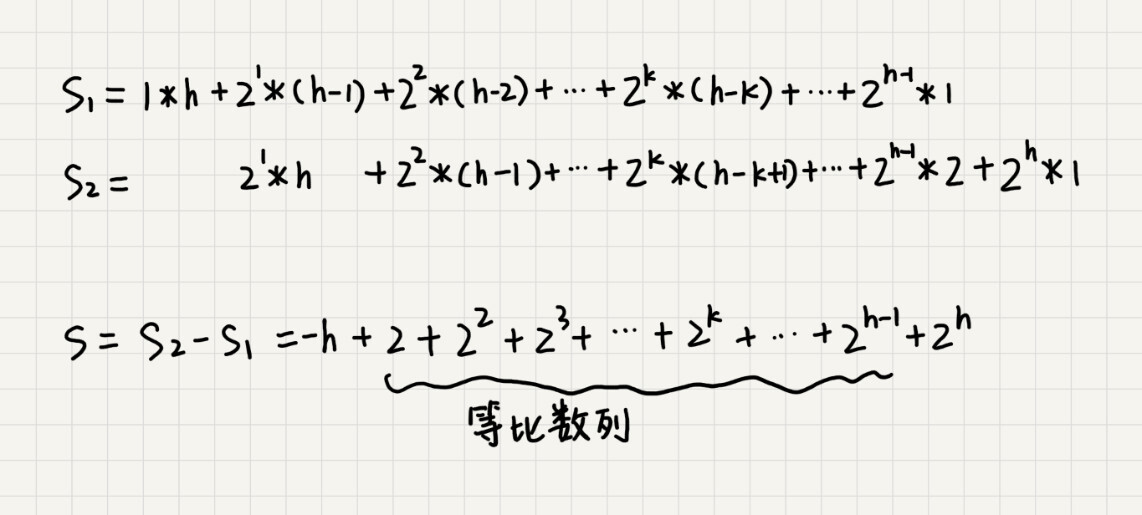 S₁ = 1*h + 2¹*(h-1) + 2²*(h-2) + ... + 2ᵏ*(h-k) + ... + 2ʰ⁻¹*1
S₂ = 2¹*h + 2²*(h-1) + ... + 2ᵏ*(h-k+1) + ... + 2ʰ⁻¹*2 + 2ʰ*1
S = S₂ - S₁ = -h + 2 + 2² + 2³ + ... + 2ᵏ + ... + 2ʰ⁻¹ + 2ʰ
等比数列